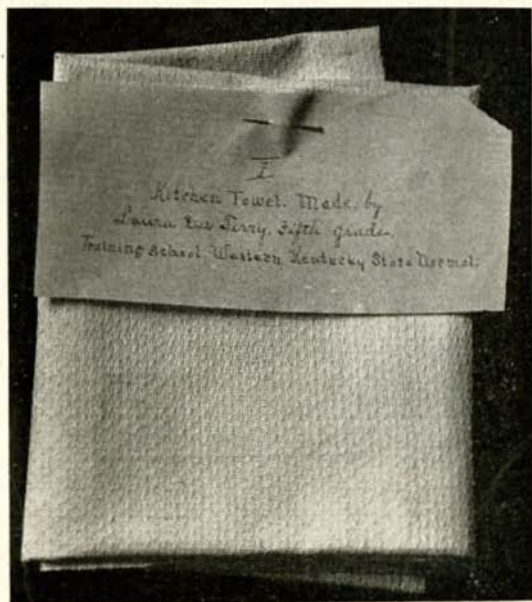 I
Kitchen Towel. Made by
Laura Lee Terry, Fifth Grade,
Training School. Western Kentucky State Normal.